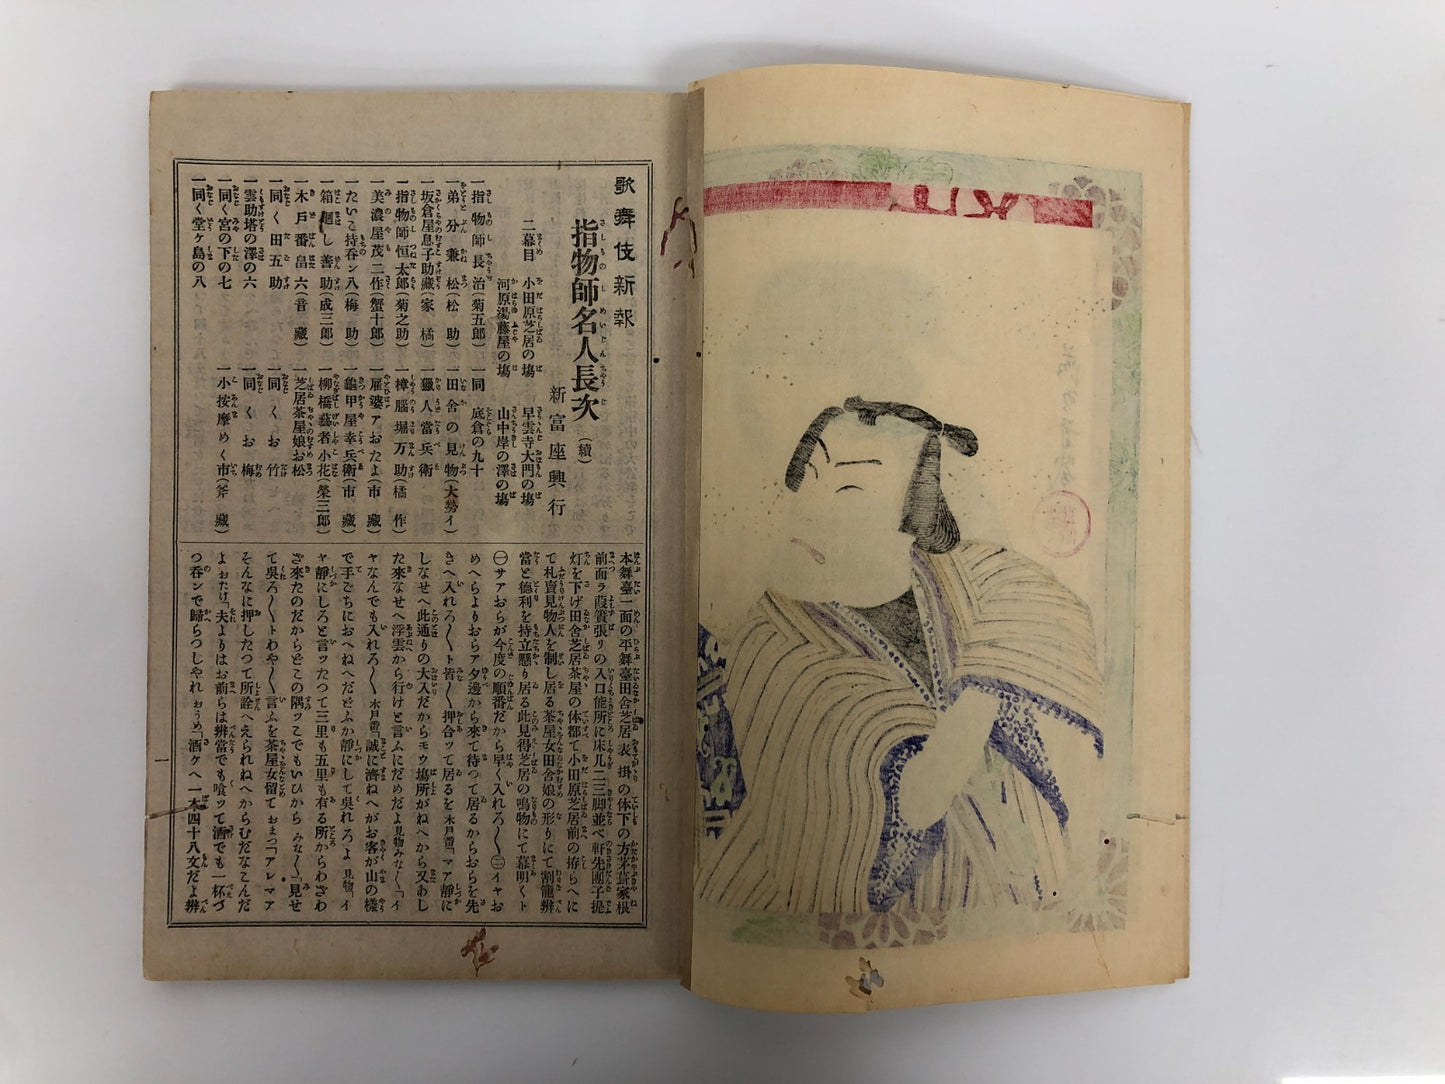 歌舞伎新報
指物師名人長次(續)
新富座興行
二幕目 小田原芝居の塲 早雲寺大門の塲
河原湯藤屋の塲 山中岸の澤の塲
一指物師長治(菊五郎) 一同 底倉の九十
一弟分兼松(松助) 一田舎の見物(大勢イ)
一坂倉屋息子助藏(家橘) 一獵人當兵衛
一指物師恒太郎(菊之助) 一樟腦堀万助(橘作)
一美濃屋茂二作(蟹十郎) 一雇婆アおたよ(市藏)
一たいこ持呑ン八(梅助) 一龜甲屋幸兵衛(市藏)
一箱廻し善助(成三郎) 一柳橋藝者小花(榮三郎)
一木戸番畠六(音藏) 一芝居茶屋娘お松
一同く田五助 一同くお竹
一雲助塔の澤の六 一同くお梅
一同く宮の下の七 一小按摩めく市(斧藏)
一同く堂ヶ島の八
本舞臺一面の平舞臺田舎芝居表掛の体下の方茅葺家根
前面ヲ葭簀張リの入口能所に床几二三脚並べ軒先團子提
灯を下げ田舎芝居茶屋の体都て小田原芝居前の拵らへに
て札賣見物人を制し居る茶屋女田舎娘の形りにて割籠辨
當と德利を持立懸り居る此見得芝居の鳴物にて幕明くト
㊀サアおらが今度の順番だから早く入れろ〳〵㊁イヤお
めへらよりおらア夕邊から來て待つて居るからおらを先
きへ入れろ〳〵ト皆〳〵押合ツて居るを木戸番「マア靜に
しなせへ此通りの大入だからモウ塲所がねへから又あし
た來なせへ浮雲から行けと言ふにだめだよ見物みな〳〵「イ
ヤなんでも入れろ〳〵木戸番「誠に濟ねへがお客が山の樣
で手ごちにおへねへだどふか靜にして吳れろよ見物「イ
ヤ靜にしろと言ツたつて三里も五里も有る所からわざわ
ざ來たのだからどこの隅ツこでもいひからみな〳〵「見せ
て吳ろ〳〵トわや〳〵言ふを茶屋女留ておまつ「アレマア
そんなに押したつて所詮へえられねへからむだなこんだ
よおたけ「夫よりはお前らは辨當でも喰ツて酒でも一杯づ
つ呑ンで歸らつしやれおうめ「酒ケへ一本四十八文だよ辨
一